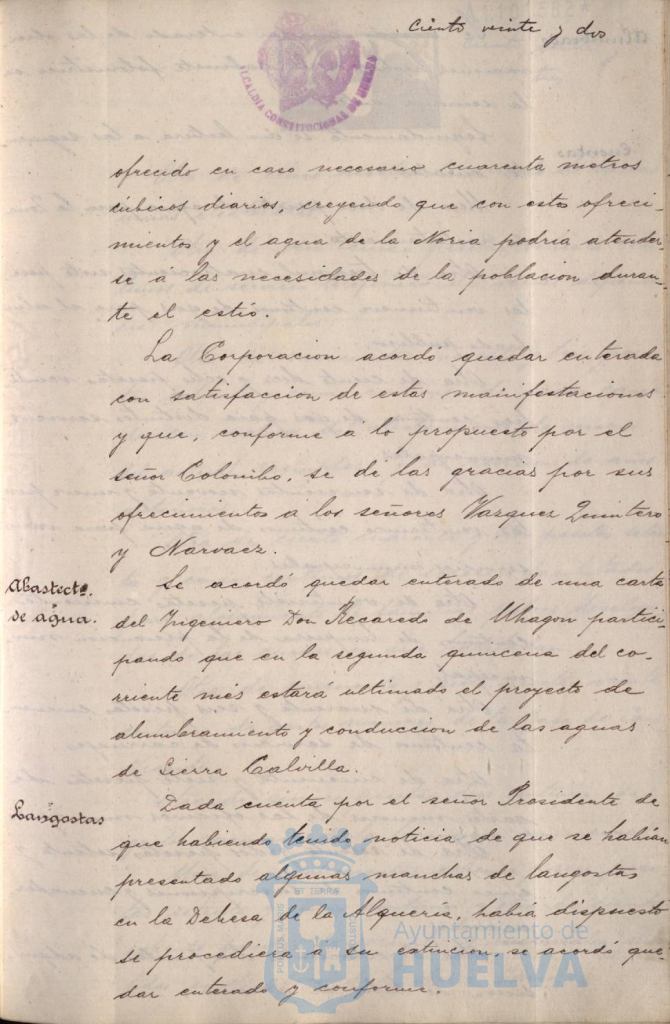 Ciento veinte y dos
ALCALDIA CONSTITUCIONAL DE HUELVA
ofrecido en caso necesario cuarenta metros
cúbicos diarios, creyendo que con estos ofreci-
mientos y el agua de la Noria podria atender-
se á las necesidades de la poblacion duran-
te el estío.
La Corporacion acordó quedar enterada
con satisfaccion de estas manifestaciones
y que, conforme á lo propuesto por el
señor Colombo, se dé las gracias por sus
ofrecimientos á los señores Vazquez Quintero
y Narvaez.
Abastecto.
de agua.
Se acordó quedar enterado de una carta
del Ingeniero Don Recaredo de Uhagon partici-
pando que en la segunda quincena del co-
rriente més estará ultimado el proyecto de
alumbramiento y conduccion de las aguas
de Sierra Calvilla.
Langostas
Dada cuenta por el señor Presidente de
que habiendo tenido noticia de que se habian
presentado algunas manchas de langostas
en la Dehesa de la Alquería, habia dispuesto
se procediera á su extincion, se acordó que-
dar enterado y conforme.
PORTUS MARIS ET TERRAE CUSTODIA
Ayuntamiento de
HUELVA